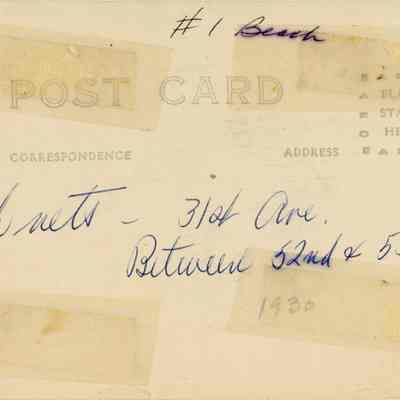 #1 Beach
POST CARD
PLA
STA
HE
CORRESPONDENCE
ADDRESS
nets - 31st Ave.
Between 52nd & 5
1930